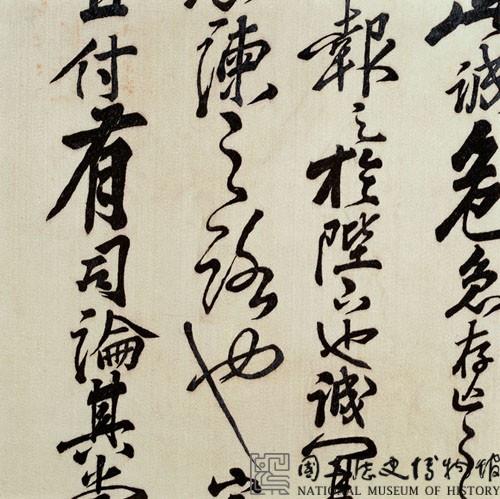 誠危急存亡之
報之於陛下也誠宜
諫之路也
付有司論其
國立歷史博物館
NATIONAL MUSEUM OF HISTORY